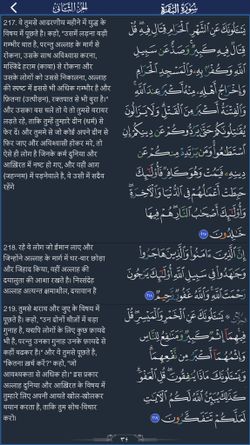 الجزء الثاني
سورة البقرة
217. वे तुमसे आदरणीय महीने में युद्ध के
विषय में पूछते है। कहो, "उसमें लड़ना बड़ी
गम्भीर बात है, परन्तु अल्लाह के मार्ग से
रोकना, उसके साथ अविश्वास करना,
मस्जिदे हराम (काबा) से रोकना और
उसके लोगों को उससे निकालना, अल्लाह
की स्पष्ट में इससे भी अधिक गम्भीर है और
फ़ितना (उत्पीड़न), रक्तपात से भी बुरा है।"
और उसका बस चले तो वे तो तुमसे बराबर
लड़ते रहे, ताकि तुम्हें तुम्हारे दीन (धर्म) से
फेर दें। और तुममे से जो कोई अपने दीन से
फिर जाए और अविश्वासी होकर मरे, तो
ऐसे ही लोग है जिनके कर्म दुनिया और
आख़िरत में नष्ट हो गए, और वही आग
(जहन्नम) में पड़नेवाले है, वे उसी में सदैव
रहेंगे
يَسْـَٔلُونَكَ عَنِ ٱلشَّهْرِ ٱلْحَرَامِ قِتَالٍ فِيهِ ۖ قُلْ
قِتَالٌ فِيهِ كَبِيرٌ ۖ وَصَدٌّ عَن سَبِيلِ
ٱللَّهِ وَكُفْرٌۢ بِهِۦ وَٱلْمَسْجِدِ ٱلْحَرَامِ
وَإِخْرَاجُ أَهْلِهِۦ مِنْهُ أَكْبَرُ عِندَ ٱللَّهِ ۚ
وَٱلْفِتْنَةُ أَكْبَرُ مِنَ ٱلْقَتْلِ ۗ وَلَا يَزَالُونَ
يُقَـٰتِلُونَكُمْ حَتَّىٰ يَرُدُّوكُمْ عَن دِينِكُمْ إِنِ
ٱسْتَطَـٰعُوا۟ ۚ وَمَن يَرْتَدِدْ مِنكُمْ عَن
دِينِهِۦ فَيَمُتْ وَهُوَ كَافِرٌ فَأُو۟لَـٰٓئِكَ
حَبِطَتْ أَعْمَـٰلُهُمْ فِى ٱلدُّنْيَا وَٱلْـَٔاخِرَةِ ۖ
وَأُو۟لَـٰٓئِكَ أَصْحَـٰبُ ٱلنَّارِ ۖ هُمْ فِيهَا
خَـٰلِدُونَ ٢١٧
218. रहे वे लोग जो ईमान लाए और
जिन्होंने अल्लाह के मार्ग में घर-बार छोड़ा
और जिहाद किया, वहीं अल्लाह की
दयालुता की आशा रखते है। निस्संदेह
अल्लाह अत्यन्त क्षमाशील, दयावान है
إِنَّ ٱلَّذِينَ ءَامَنُوا۟ وَٱلَّذِينَ هَاجَرُوا۟
وَجَـٰهَدُوا۟ فِى سَبِيلِ ٱللَّهِ أُو۟لَـٰٓئِكَ يَرْجُونَ
رَحْمَتَ ٱللَّهِ ۚ وَٱللَّهُ غَفُورٌ رَّحِيمٌ ٢١٨
219. तुमसे शराब और जुए के विषय में
पूछते है। कहो, "उन दोनों चीज़ों में बड़ा
गुनाह है, यद्यपि लोगों के लिए कुछ फ़ायदे
भी है, परन्तु उनका गुनाह उनके फ़ायदे से
कहीं बढकर है।" और वे तुमसे पूछते है,
"कितना ख़र्च करें?" कहो, "जो
आवश्यकता से अधिक हो।" इस प्रकार
अल्लाह दुनिया और आख़िरत के विषय में
तुम्हारे लिए अपनी आयते खोल-खोलकर
बयान करता है, ताकि तुम सोच-विचार
करो।
يَسْـَٔلُونَكَ عَنِ ٱلْخَمْرِ وَٱلْمَيْسِرِ ۖ قُلْ
فِيهِمَآ إِثْمٌ كَبِيرٌ وَمَنَـٰفِعُ لِلنَّاسِ
وَإِثْمُهُمَآ أَكْبَرُ مِن نَّفْعِهِمَا ۗ
وَيَسْـَٔلُونَكَ مَاذَا يُنفِقُونَ قُلِ ٱلْعَفْوَ ۗ
كَذَٰلِكَ يُبَيِّنُ ٱللَّهُ لَكُمُ ٱلْـَٔايَـٰتِ
لَعَلَّكُمْ تَتَفَكَّرُونَ ٢١٩
٣٤